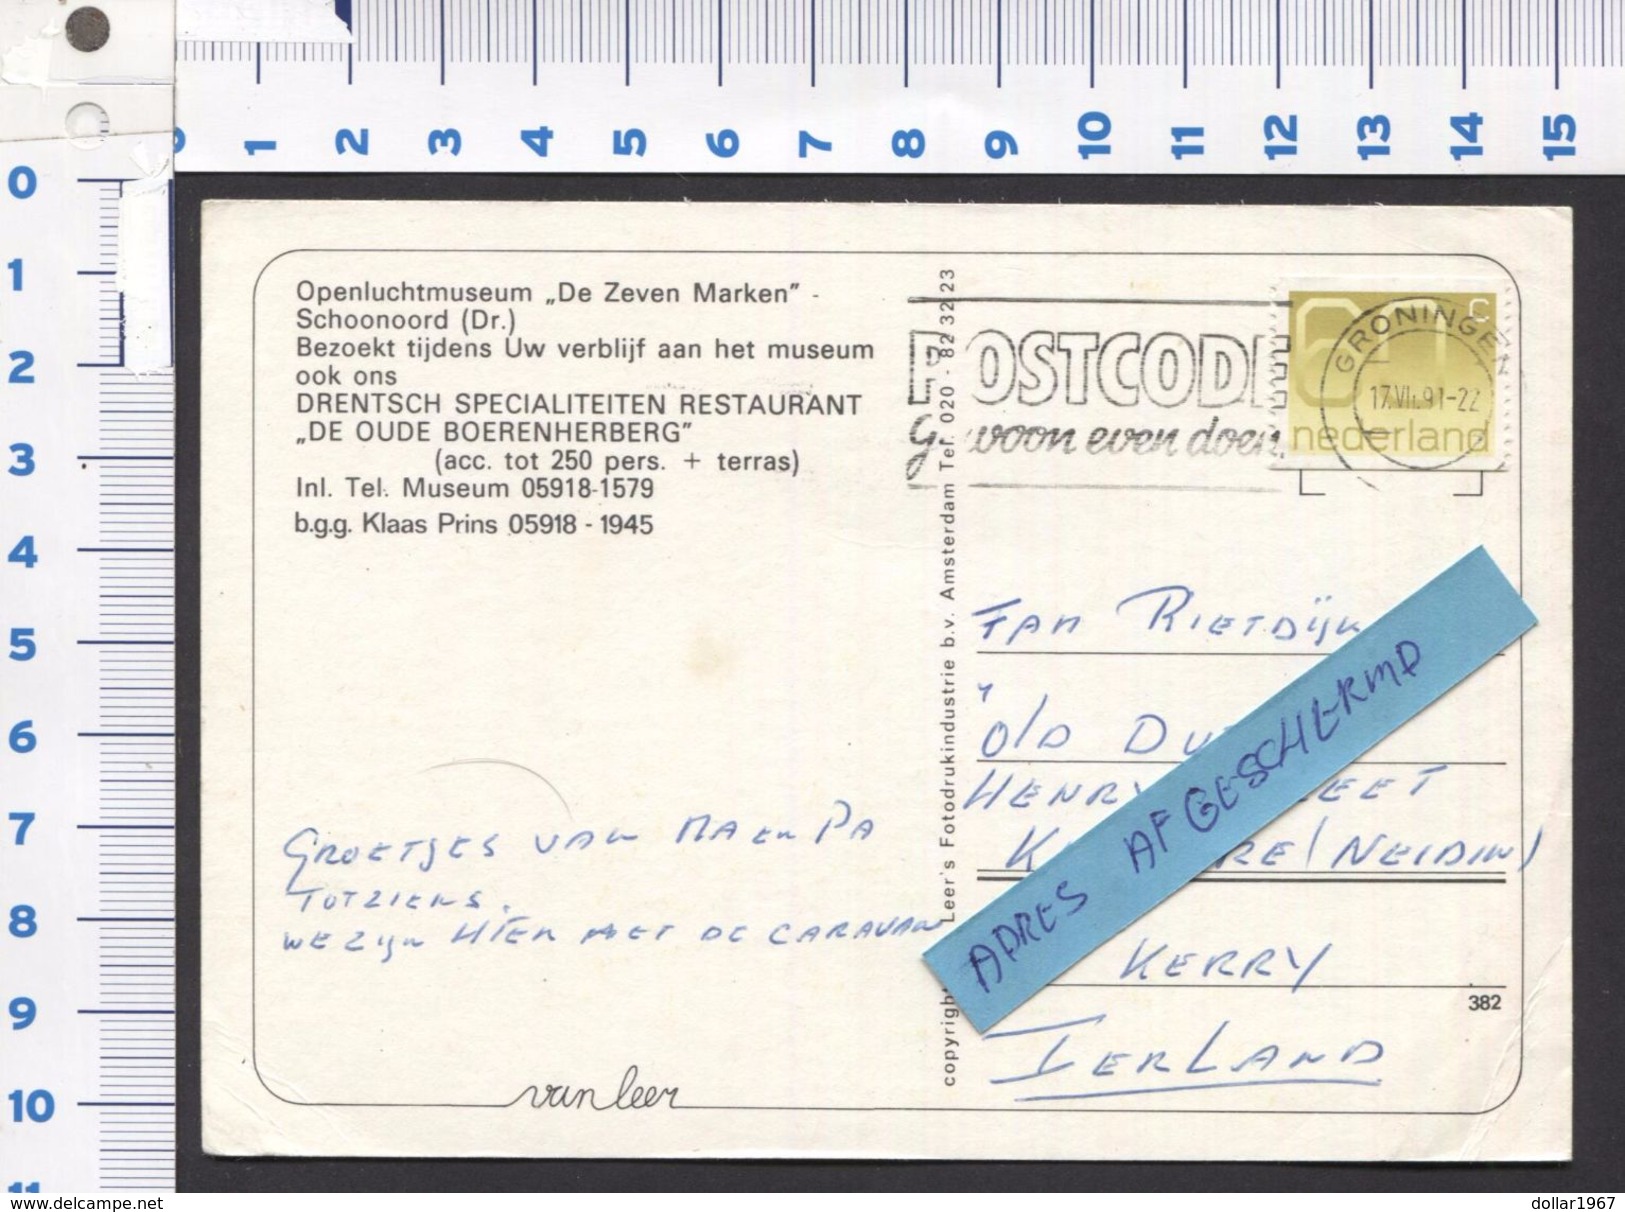 0 1 2 3 4 5 6 7 8 9 10 11 12 13 14 15
0
1
2
3
4
5
6
7
8
9
10
11
Openluchtmuseum „De Zeven Marken” -
Schoonoord (Dr.)
Bezoekt tijdens Uw verblijf aan het museum
ook ons
DRENTSCH SPECIALITEITEN RESTAURANT
„DE OUDE BOERENHERBERG”
(acc. tot 250 pers. + terras)
Inl. Tel. Museum 05918-1579
b.g.g. Klaas Prins 05918 - 1945
GROETJES VAN MA EN PA
TOTZIENS.
WE ZIJN HIER MET DE CARAVAN
van leer
copyright Leer's Fotodrukindustrie b.v. Amsterdam Tel. 020 - 82 32 23
POSTCODE
Gewoon even doen.
60 c
nederland
GRONINGEN
17.VII.91-22
FAM RIETDIJK
OLD
HENRY
(NEIDIN)
KERRY
IERLAND
ADRES AFGESCHERMD
382
www.delcampe.net
dollar1967